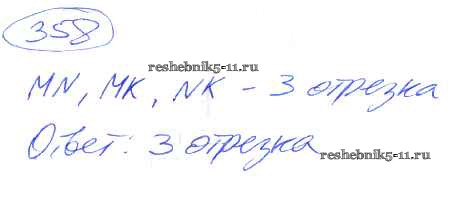 358
reshebnik5-11.ru
MN, MK, NK - 3 отрезка
Ответ: 3 отрезка
reshebnik5-11.ru